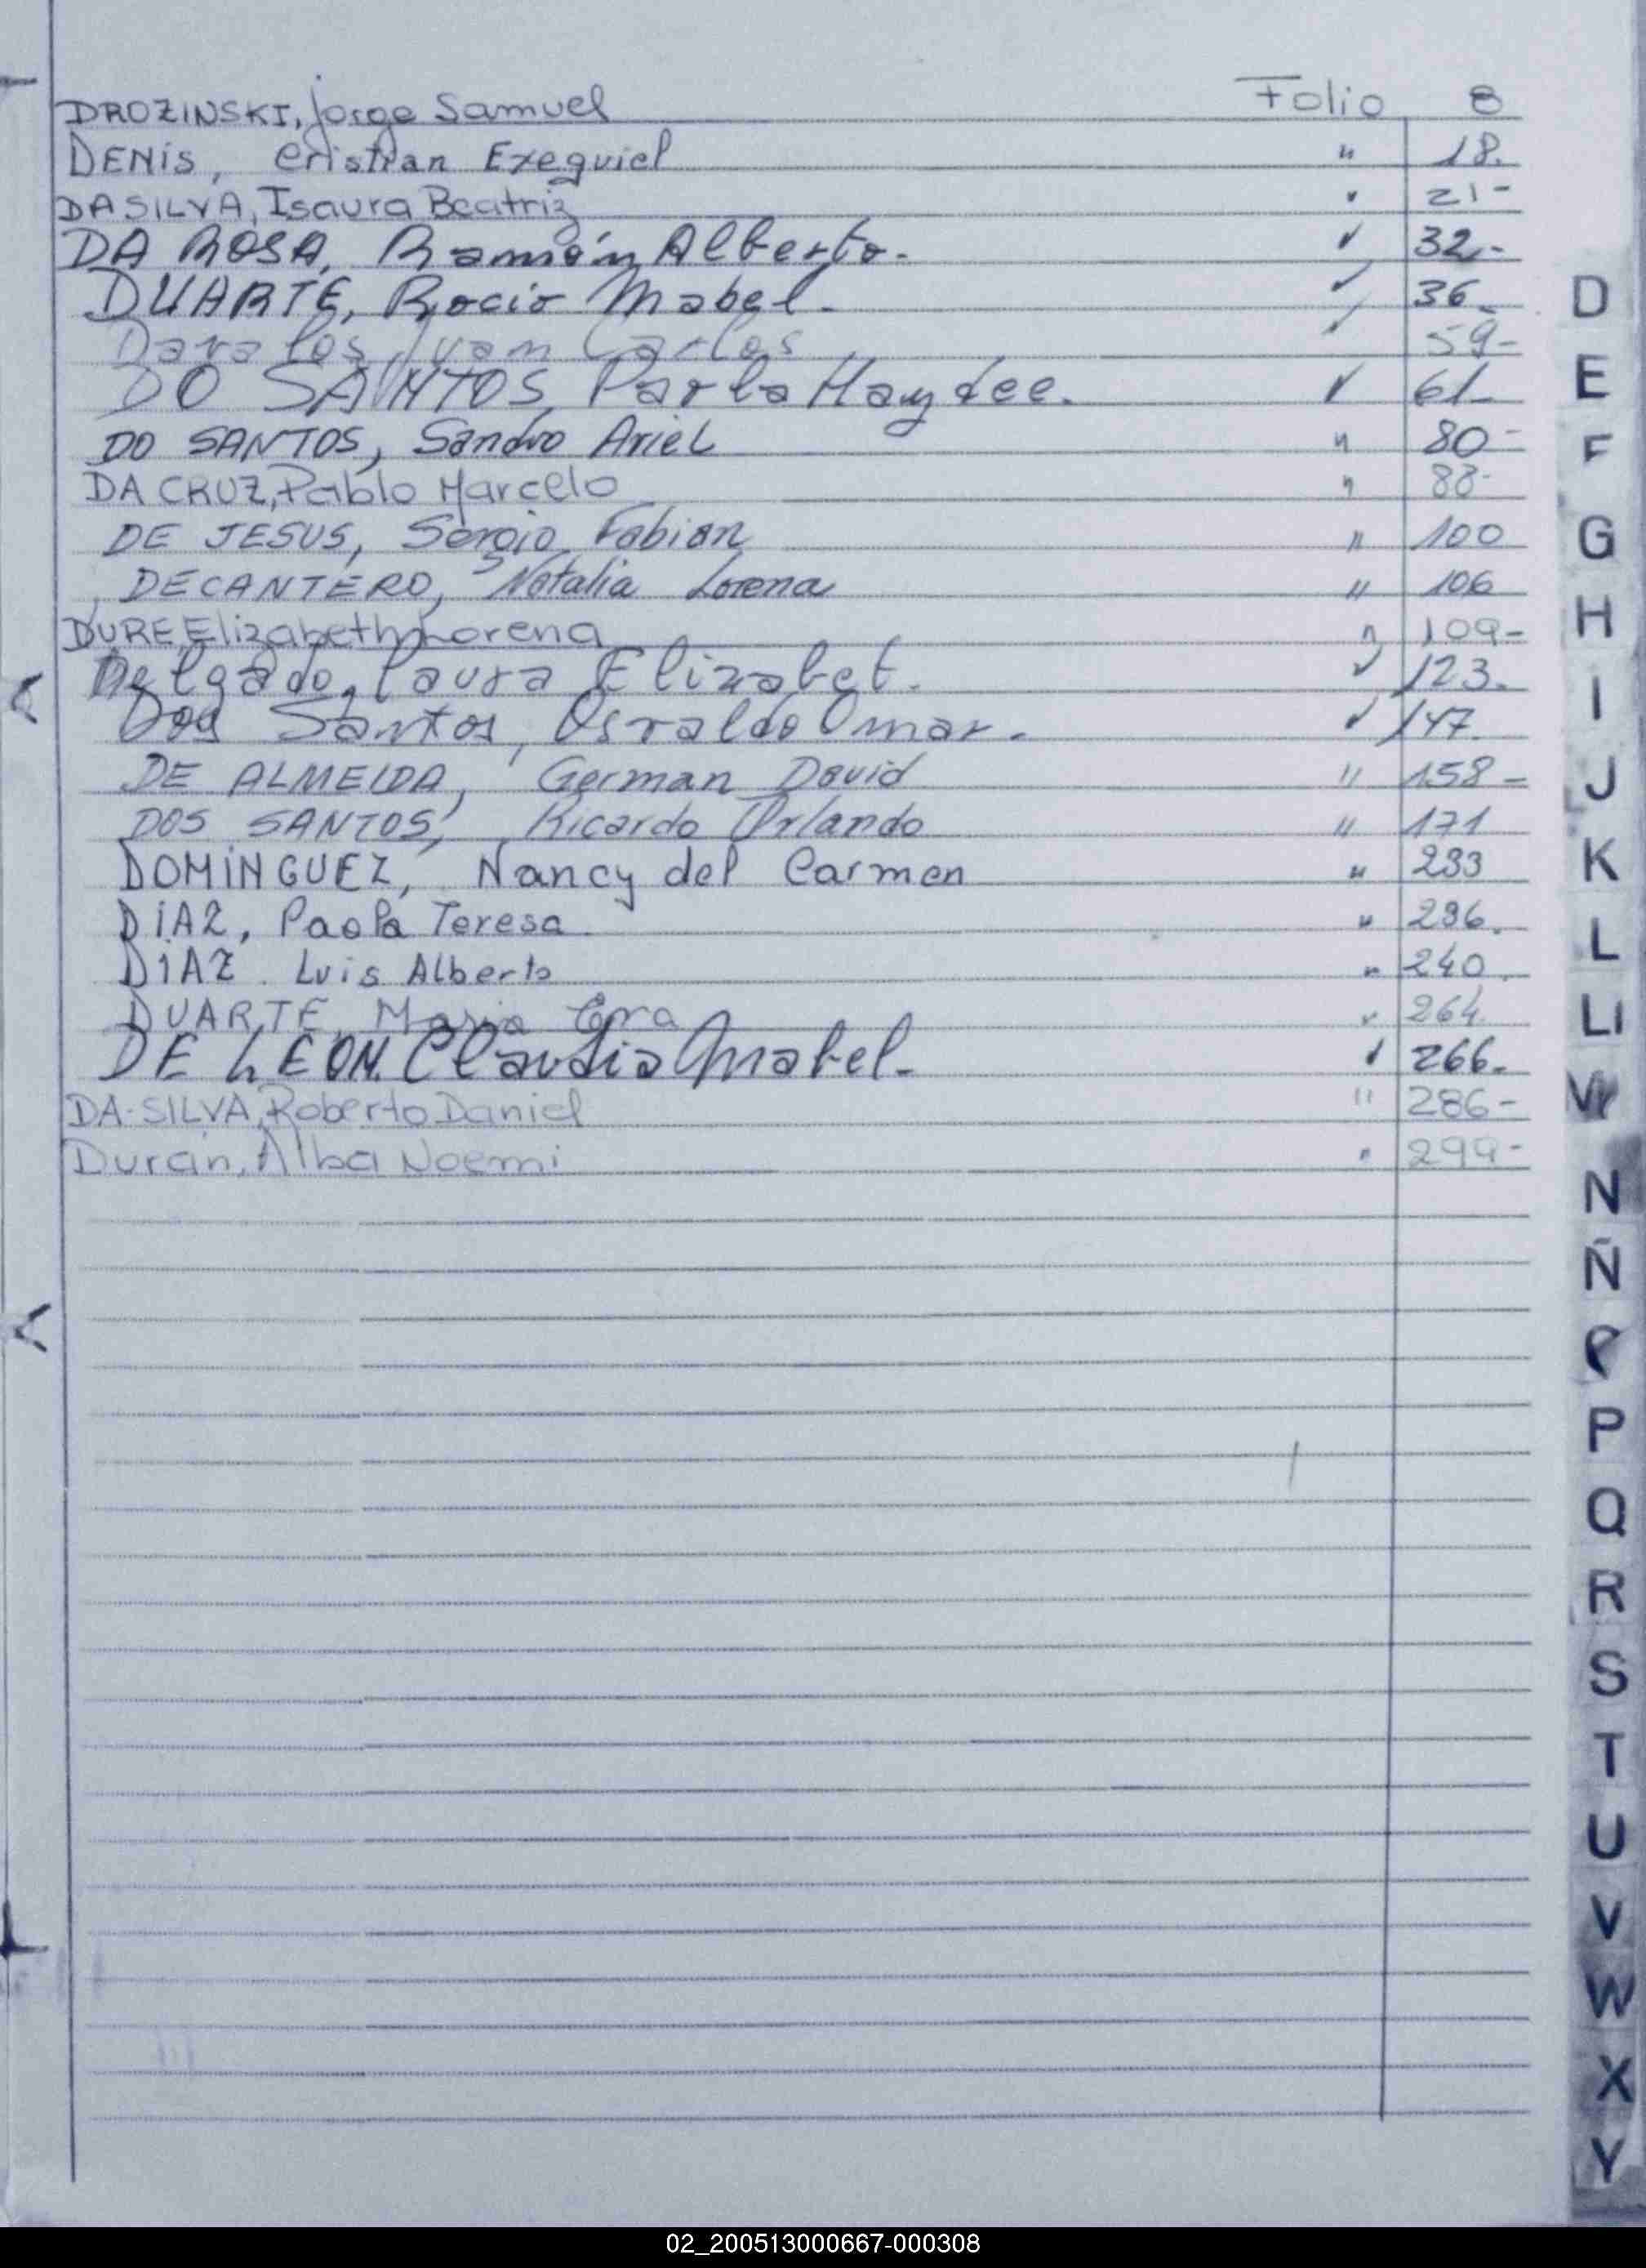 DROZINSKI, Jorge Samuel Folio 8
DENIS, Cristian Exequiel " 18.
DA SILVA, Isaura Beatriz " 21-
DA ROSA, Ramón Alberto. " 32.-
DUARTE, Rocio Mabel. " 36.
Juan Carlos " 59-
DO SANTOS, Parla Haydee. " 61-
DO SANTOS, Sandro Ariel " 80-
DA CRUZ, Pablo Marcelo " 88-
DE JESUS, Sergio Fabian " 100
DECANTERO, Natalia Lorena " 106
DURE, Elizabeth Lorena " 109-
Delgado, Laura Elizabet. " 123.
Dos Santos, Osvaldo Omar. " 147.
DE ALMEIDA, German David " 158-
DOS SANTOS, Ricardo Orlando " 171
DOMINGUEZ, Nancy del Carmen " 233
DIAZ, Paola Teresa " 236.
DIAZ. Luis Alberto " 240.
DUARTE, Maria " 264
DE LEON, Claudia Mabel. " 266.
DA-SILVA, Roberto Daniel " 286-
Duran, Alba Noemi " 299-
D
E
F
G
H
I
J
K
L
Ll
N
Ñ
P
Q
R
S
T
U
V
W
X
Y
02_200513000667-000308